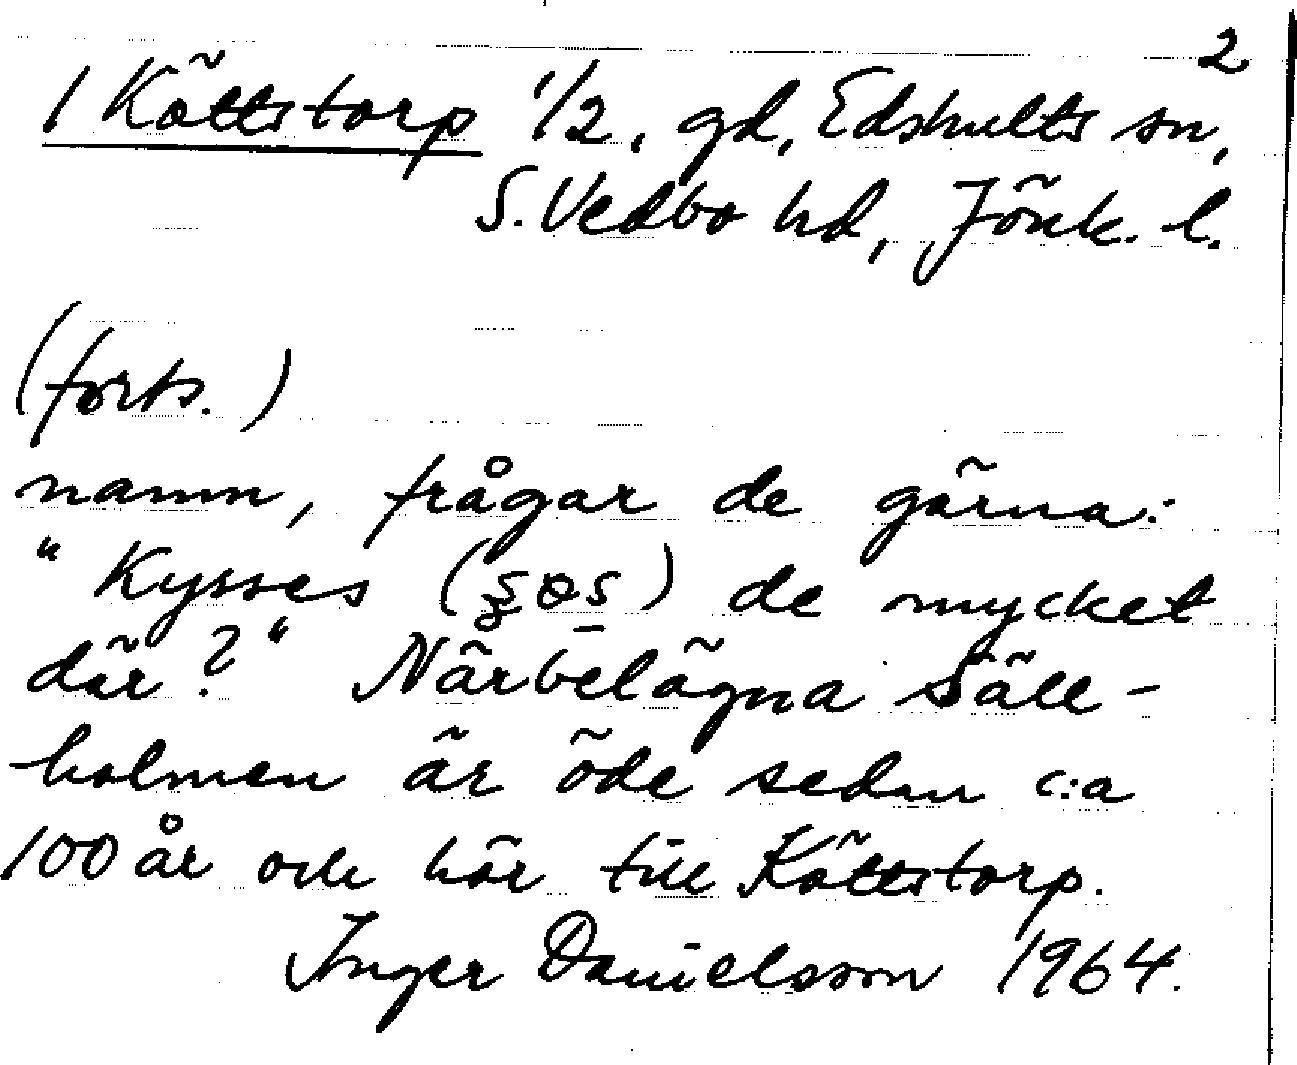 2
1 Köttstorp 1/2, gd, Edshults sn,
S. Vedbo hd, Jönk. l.
(forts.)
namn, frågar de gärna:
"Kysses () de mycket
där?" Närbelägna Säll-
holmen är öde sedan c:a
100 år och hör till Köttstorp.
Inger Danielsson 1964.